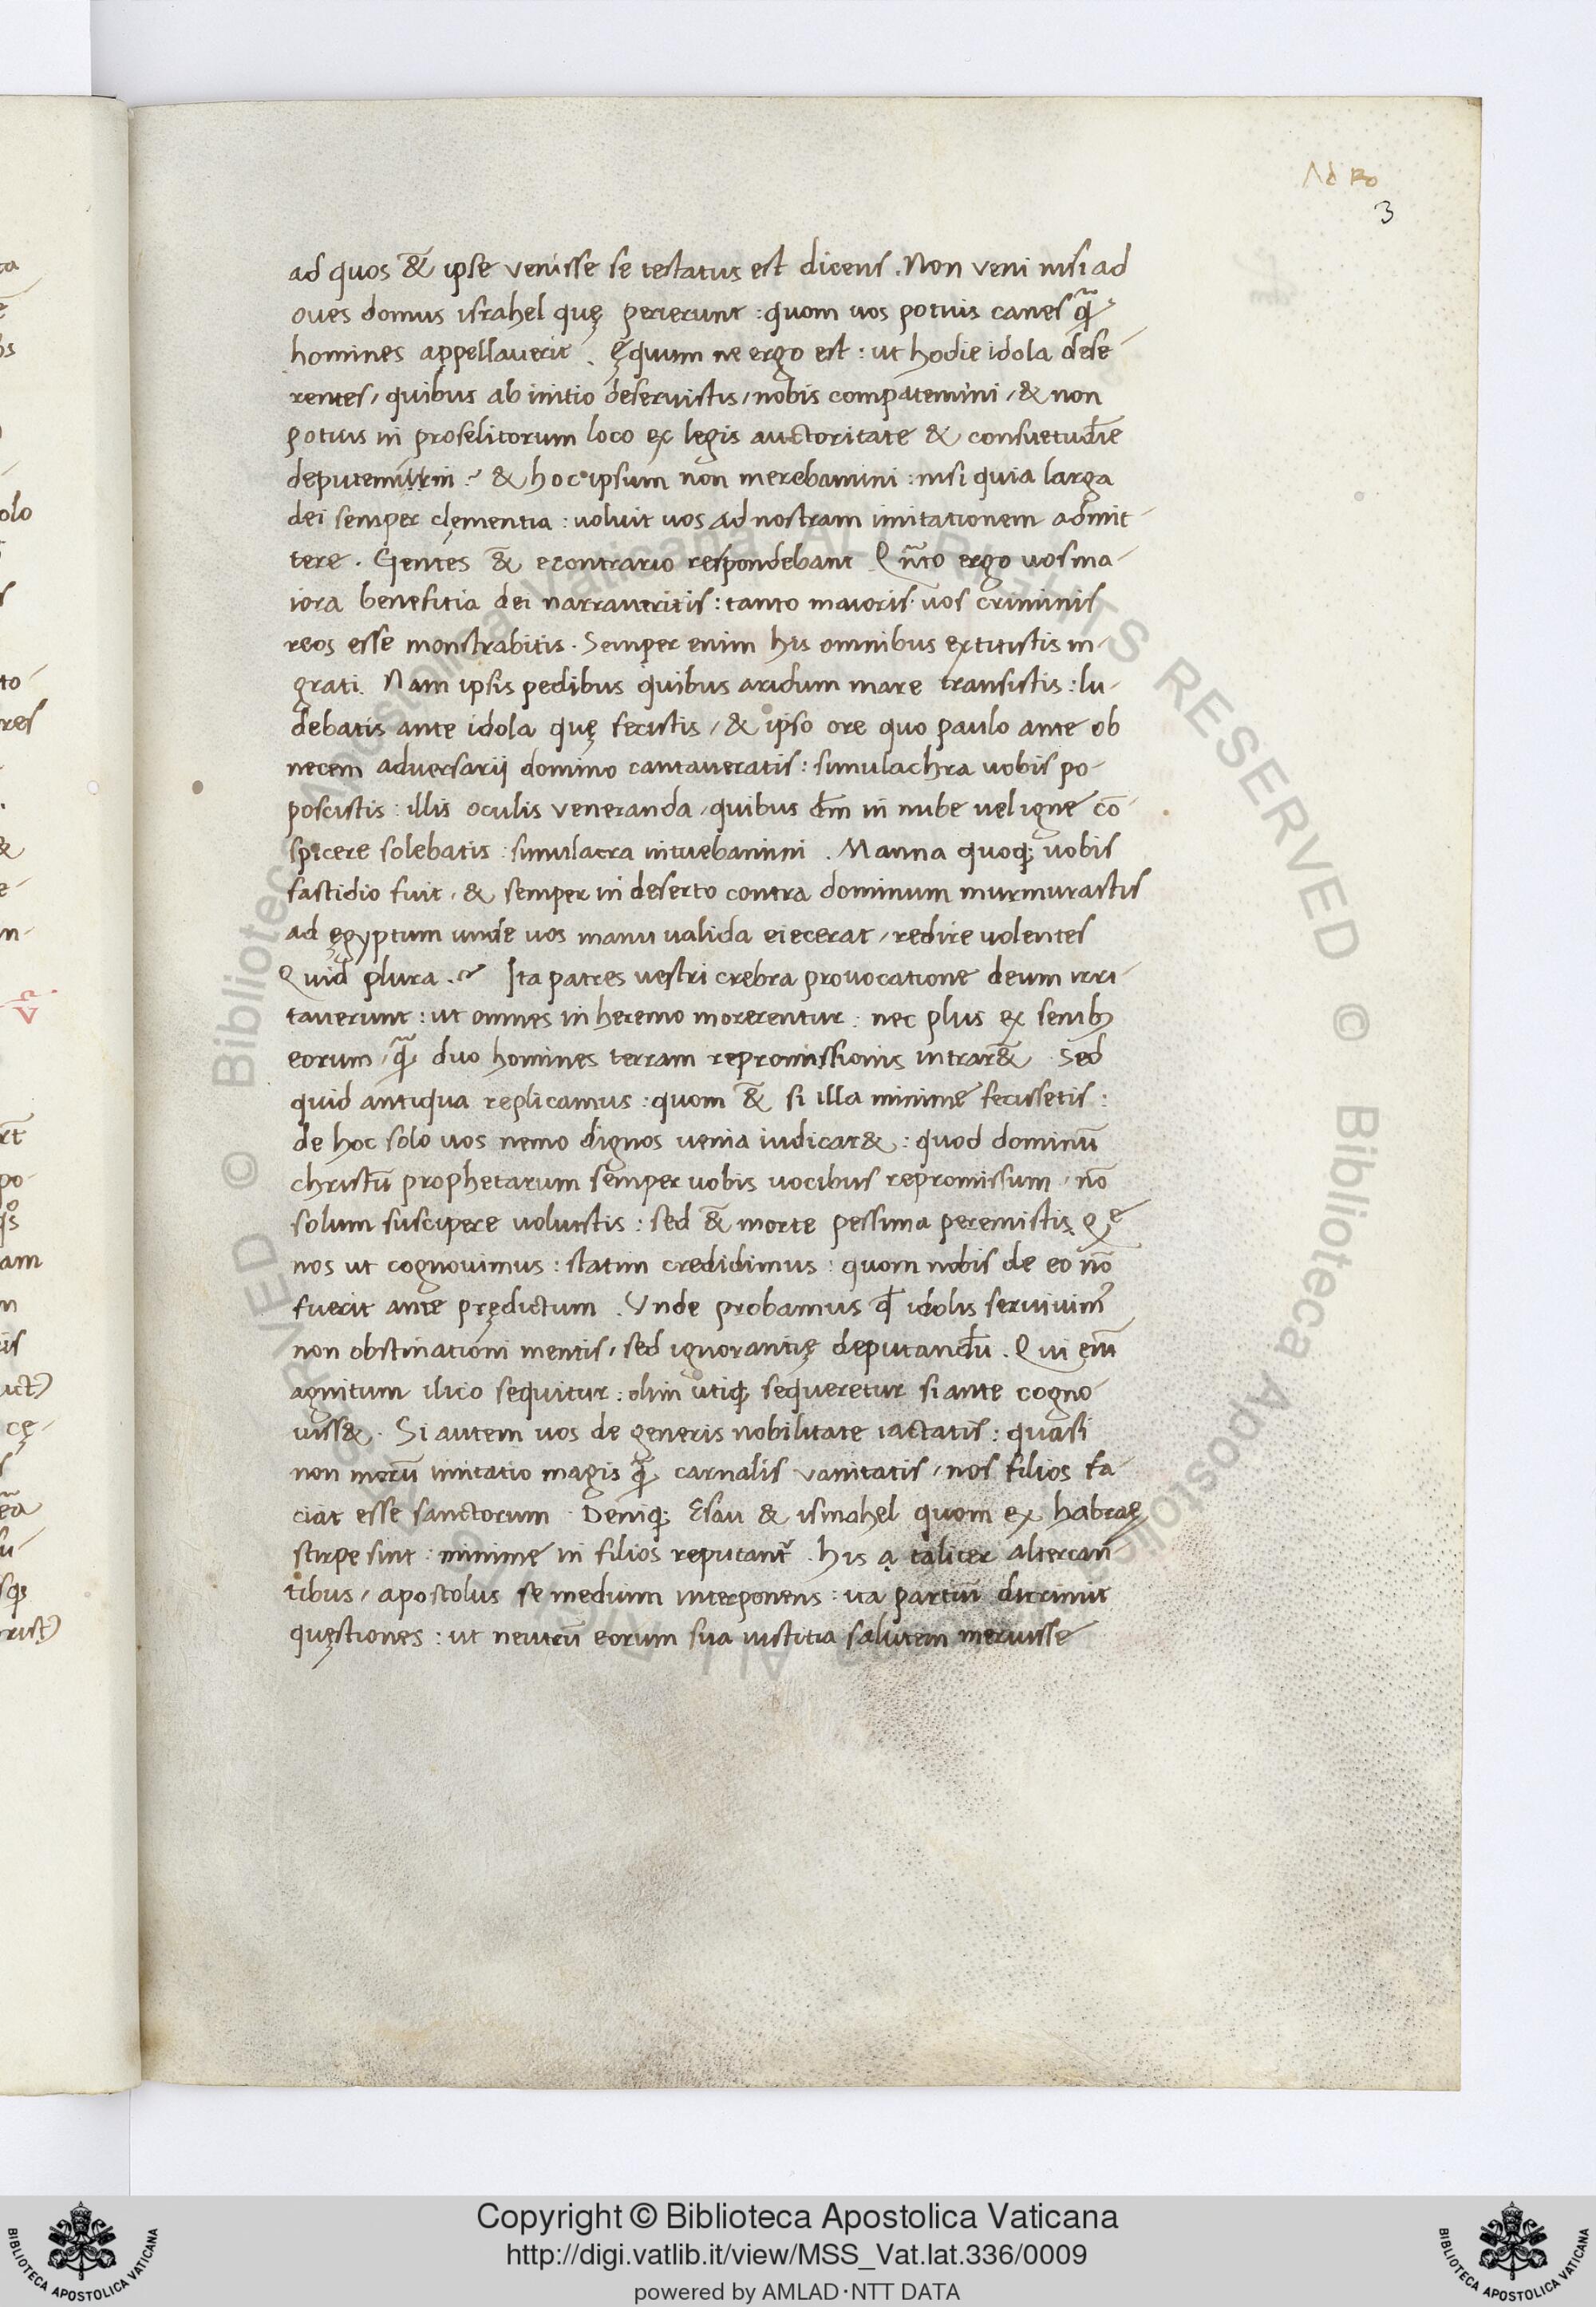 Ad Ro
3
ad quos &̄ ipse venisse se testatus est dicens . Non veni nisi ad
oues domus israhel quę perierunt : quom uos potuis canes q̄ꝫ
homines appellauerit . ęquum ne ergo est : ut hodie idola dese-
rentes / quibus ab initio deseruistis / nobis compatemini / & non
potuis in proselitorum loco ex legis auctoritate & consuetud̄ie
deputemini ? & hoc ipsum non merebamini : nisi quia larga
dei semper clęmentia : uoluit uos ad nostram imitationem admit-
tere . Gentes &̄ econtrario respondebant Qn̄to ergo uos ma-
iora benefitia dei narraueritis : tanto maioris uos criminis
reos esse monstrabitis . Semper enim his omnibus extitistis in-
grati . Nam ipsis pedibus quibus aridum mare transistis : lu-
debatis ante idola quę fecistis / & ipso ore quo paulo ante ob
necem adversarij domino cantaueratis : simulachra uobis po-
poscistis : illis oculis veneranda / quibus dm̄ in nube uel igne cō-
spicere solebatis : simulacra intuebamini . Manna quoqꝫ uobis
fastidio fuit / & semper in deserto contra dominum murmurastis
ad ęgyptum unde uos manu valida eiecerat / redire uolentes
Quid plura . ? Ita patres vestri crebra provocatione deum irri-
tauerunt : ut omnes in heremo morerentur : nec plus ex senibꝫ
eorum / q̄ꝫ duo homines terram repromissionis intrar&̄ Sed
quid antiqua replicamus : quom &̄ si illa minime fecissetis :
de hoc solo uos nemo dignos uenia iudicar& : quod dominū
christū prophetarum semper uobis uocibus repromissum / nō
solum suscipere voluistis : sed &̄ morte pessima peremistis Qę
nos ut cognouimus : statim credidimus : quom nobis de eo nō
fuerit ante prędictum . Vnde probamus qđ idolis servivimꝰ
non obstinationi mentis / sed ignorantię deputand̄u . Qui eīm
agnitum ilico sequitur : olim utiqꝫ sequeretur si ante cogno-
uiss& . Si autem uos de generis nobilitate iactatis : quasi
non morū imitatio magis q̄ꝫ carnalis vanitatis / nos filios fa-
ciat esse sanctorum . Deniqꝫ Esau & ismahel quom ex habraę
stirpe sint : minime in filios reputant᷑ . his a taliter altercan-
tibus / apostolus se medium interponens : ita partiū dirimit
quęstiones : ut neutrū eorum sua iustitia salutem meruisse
Copyright © Biblioteca Apostolica Vaticana
http://digi.vatlib.it/view/MSS_Vat.lat.336/0009
powered by AMLAD·NTT DATA